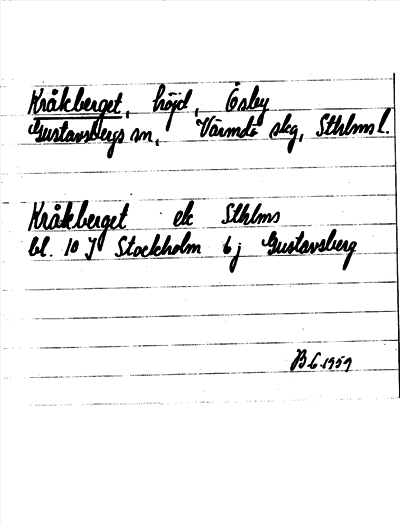 Kråkberget, höjd, Ösby
Gustavsbergs sn, Värmdö skg, Sthlms l.
Kråkberget ek Sthlms
bl. 10 J Stockholm 6 j Gustavsberg
B G 1959